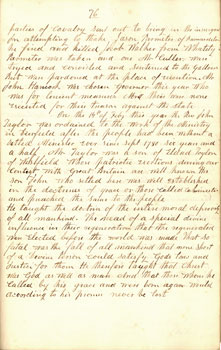 76
parties of cavalry sent out to bring in the insurgents
for attempting to take Jason Parmelee of Huntsville
he fired and killed Jacob Walker from Whately
Parmelee was taken and one McCullen was
tryed and convicted and sentenced to the gallows
but was pardoned at the place of execution
John Hancock was chosen governor this year who
was for lenient measures and there were none
executed for their treason against the state
On the 1st of July this year the Rev
Taylor was ordained to the work of the ministry
in Deerfield after the people had been without a
settled Minister for several years and
a half. Mr Taylor was a son of Eldad Taylor
of Westfield When patriotic exertions during our
contest with Great Britain are well known the
son John who settled here was well established
in the doctrines of grace or those called Calvinistic
and preached the same to the people
He taught the doctrine of the entire moral depravity
of all mankind. The need of a special divine
influence in their regeneration that the regenerated
were elected before the world was made that so
total was the fall of all mankind that none short
of a Divine Person could satisfy Gods law and
Justice for them He therefore taught that Christ
was God as well as man and that those whom he
called by his grace and were born again would
according to his promise never be lost